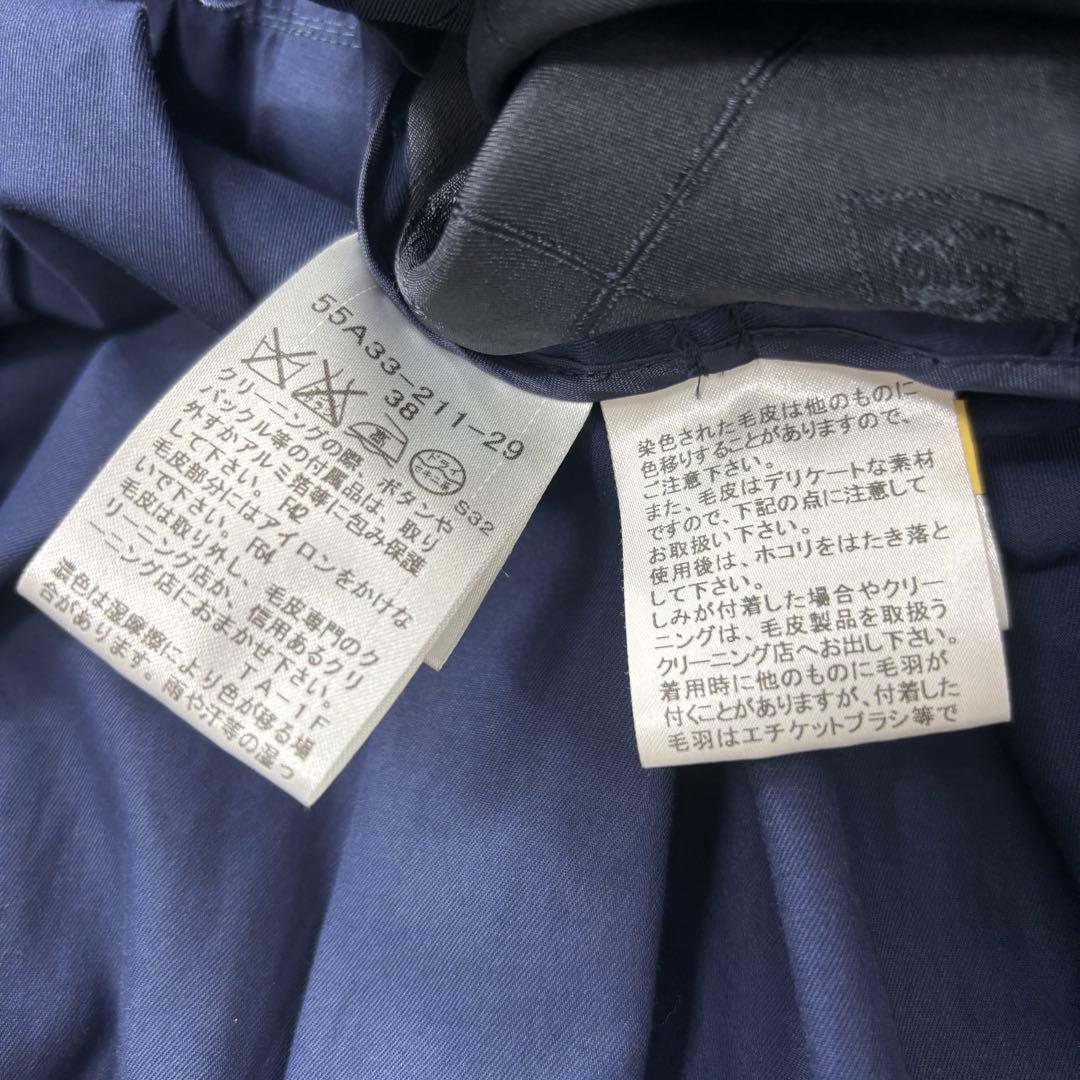 55A33-211-29
38
高
ドライ
セキユ系
S32
クリーニングの際、ボタンや
バックル等の付属品は、取り
外すかアルミ箔等に包み保護
して下さい。 F42
毛皮部分にはアイロンをかけな
いで下さい。 F64
毛皮は取り外し、毛皮専門のク
リーニング店か、信用あるクリ
ーニング店におまかせ下さい。
TA-1F
濃色は湿摩擦により色が移る場
合があります。雨や汗等の湿っ
染色された毛皮は他のものに
色移りすることがありますので、
ご注意下さい。
また、毛皮はデリケートな素材
ですので、下記の点に注意して
お取扱い下さい。
使用後は、ホコリをはたき落と
して下さい。
しみが付着した場合やクリー
ニングは、毛皮製品を取扱う
クリーニング店へお出し下さい。
着用時に他のものに毛羽が
付くことがありますが、付着した
毛羽はエチケットブラシ等で